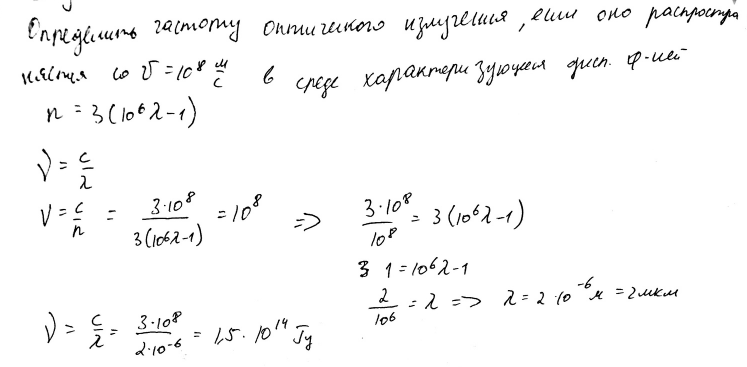 Определить частоту оптического излучения, если оно распростра
няется со v = 10⁸ м/с в среде характеризующейся дисп. ф-ией
n = 3(10⁶λ-1)
ν = c/λ
v = c/n = 3·10⁸/3(10⁶λ-1) = 10⁸ => 3·10⁸/10⁸ = 3(10⁶λ-1)
1 = 10⁶λ-1
2/10⁶ = λ => λ = 2·10⁻⁶ м = 2 мкм
ν = c/λ = 3·10⁸/2·10⁻⁶ = 1,5·10¹⁴ Гц